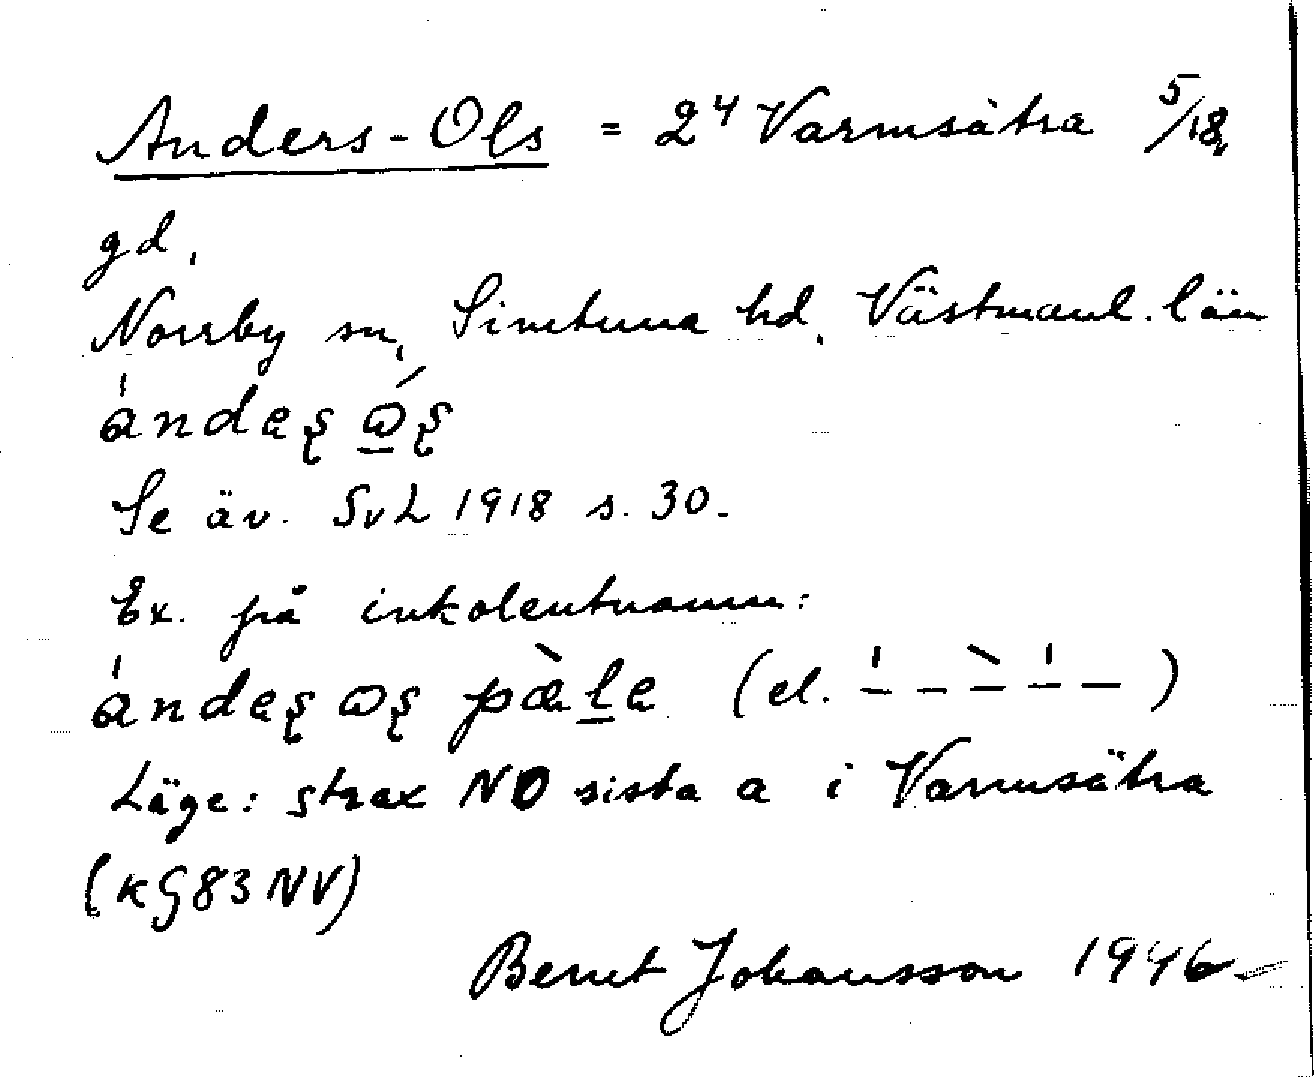 Anders-Ols = 2⁴ Varmsätra 5/18
gd.
Norrby sn, Simtuna hd. Västmanl. län
Se äv. SvL 1918 s. 30.
Ex. på inkolentnamn:
(el.
Läge: strax NO sista a i Varmsätra
(kG83NV)
Bernt Johansson 1946